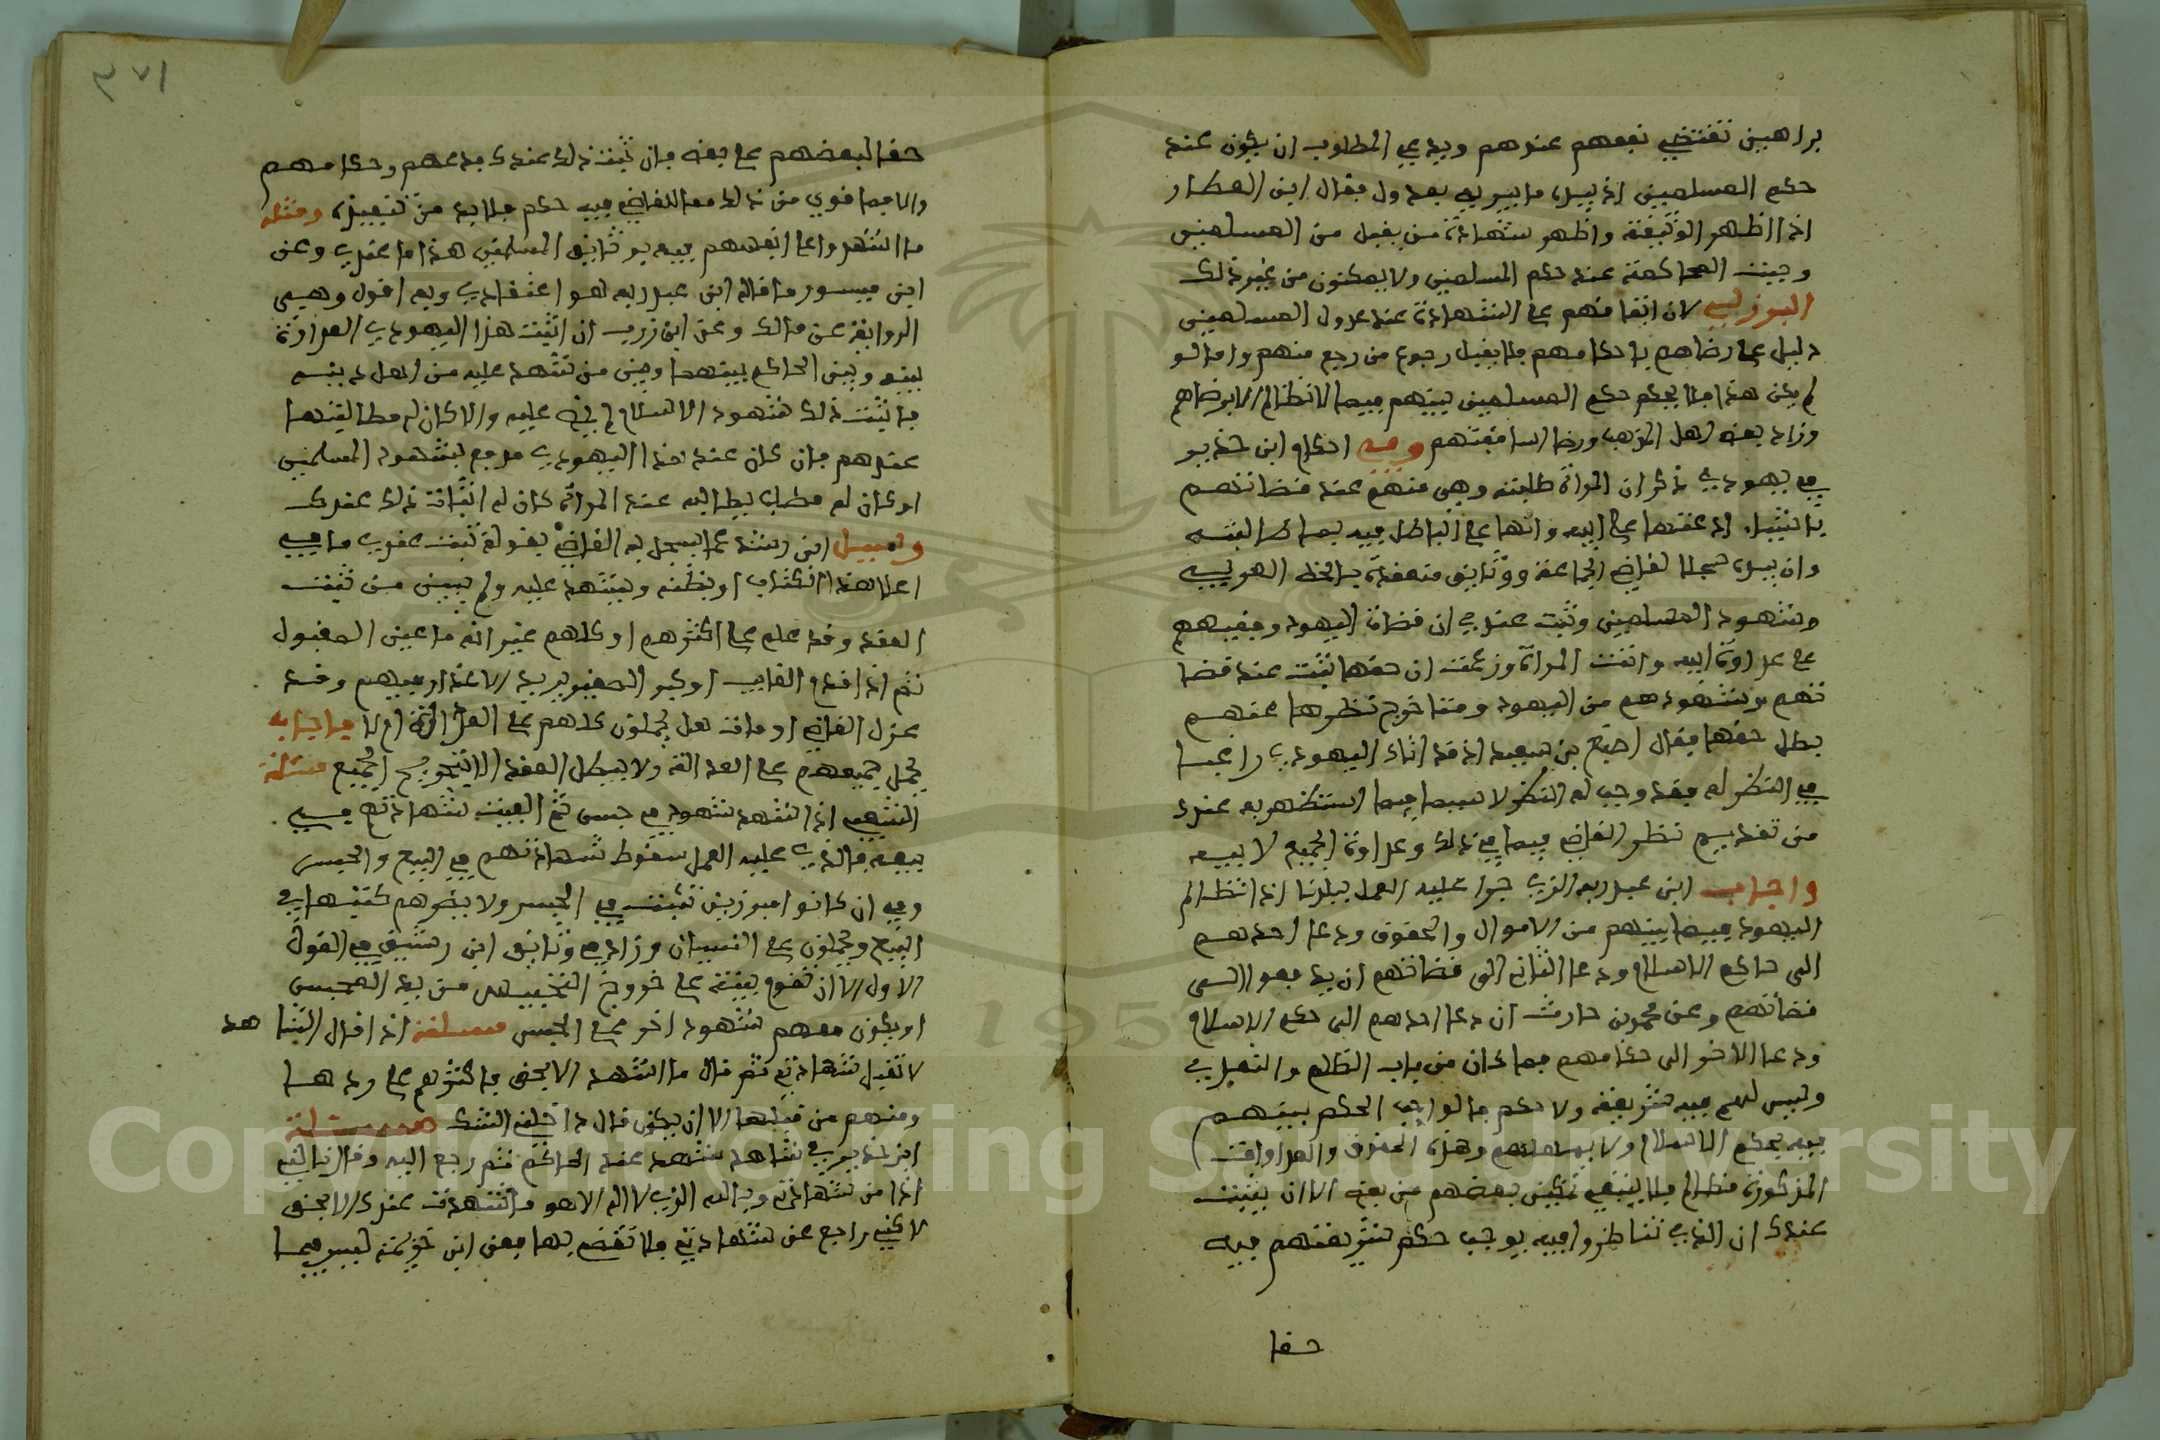 براهين تقتضي نفعهم عندهم ويدعي المطلوب ان يكون عند
حكم المسلمين اذ بيده ما يبريه بعدول فقال ابن العطار
اذا اظهر الوثيقة واظهر شهادة من يقبل من المسلمين
وجبت المحاكمة عند حكم المسلمين ولا يمكنون من غير ذلك
البرزلي لان اتفاقهم على الشهادة عند عدول المسلمين
دليل على رضاهم باحكامهم فلا يقبل رجوع من رجع منهم واما لو
لم يكن هذا فلا يحكم حكم المسلمين بينهم فيما لا تظالم الا برضاهم
وزاد بعض اهل المذهب ورضا اساقفتهم وفي احكام ابن حدير
في يهودي ذكر ان المراة طلبته وهي منهم عند قضاتهم
باشياء ادعتها على ابيه وانها على الباطل فيه بما
وان بيده سجلا لقاضي الجماعة ووثايق منعقدة بالخط العربي
وشهود المسلمين وثبت عندي ان قضاة اليهود وفقيههم
على عداوة ابيه واتت المراة وزعمت ان حقها ثبت عند قضا
تهم وشهودهم من اليهود ومتا خرج نظرها عنهم
بطل حقها فقال اصبغ بن سعيد اذ قد اتاك اليهودي راغبا
في النظر له فقد وجب له النظر لا سيما فيما استظهر به عندك
من تقديم نظر القاضي فيما في ذلك وعداوة الجميع لا بيه
واجاب ابن عبد ربه الذي جرا عليه العمل ببلدنا اذا تظالم
اليهود فيما بينهم من الاموال والحقوق ودعا احدهم
الى حاكم الاسلام ودعا الثاني الى قضاتهم ان يدفعوا الى
قضاتهم وعن محمد بن حارث ان دعا احدهم الى حكم الاسلام
ودعا الاخر الى حكامهم فما كان من باب التظالم والتعدي
وليس لهم فيه شريعة ولا حكم فالواجب الحكم بينهم
فيه بحكم الاسلام ولا وهذه الحقوق والعداوات
المذكورة تظالم فلا ينبغي تمكين بعضهم من بعض الا ان يثبت
عندك ان الذي تناظروا فيه يوجب حكم شريعتهم فيه
حقا
٣٧١
حقا لبعضهم على بعض فان ثبت ذلك عندك فدعهم وحكامهم
والا فيما قوي من ذلك معا للقاضي فيه حكم فلا بد من تنفيذه ومثله
ما اشهدوا على انفسهم فيه بوثايق المسلمين هذا ما عندي وعن
ابن ميسور ما قاله ابن عبد ربه هو اعتقادي وبه اقول وهي
الرواية عن مالك وعن ابن زرب ان اثبت هذا اليهودي العداوة
بينه وبين الحاكم بينهما وبين من شهد عليه من اهل دينه
فاثبت ذلك شهود الاسلام لم يقض عليه والا كان له مطالبتها
عندهم فان كان عند هذا اليهودي مدفع بشهود المسلمين
او كان له مطلب يطالبه عند المراة كان له اثبات ذلك عندك
وسييل ابن رشد عما يسجل به القاضي بقوله ثبت عندي ما في
اعلا هذا الكتاب او بطنه ويشهد عليه ولم يبين من ثبت
العقد وقد علم على اكثرهم او كلهم غير انه ما عين المقبول
ثم اذا قدم الغايب او كبر الصغير يريد الاعذار فيهم وقد
عزل القاضي او مات هل يحملون كلهم على العدالة ام لا فاجابه
يحمل جميعهم على العدالة ولا يبطل العقد الا بتجريح الجميع مسئلة
الشعبي اذا شهد شهود في حبس ثم الفيت شهادتهم في
بيعه فالذي عليه العمل سقوط شهادتهم في البيع والحبس
وفيه ان كانوا مبرزين ثبتت في الحبس ولا يضرهم كتبها في
البيع ويحملون على النسيان وزاد في وثايق ابن رشيق في القول
الاول الا ان تقوم بينة على خروج التحبيس من يد المحبس
او يكون معهم شهود اخر على الحبس مسئلة اذا قال الشاهد
لا تقبل شهادتي ثم قال ما اشهد الا بحق فاكثرهم على ردها
ومنهم من قبلها الا ان يكون قال داخلني الشك مسئلة
ابن حدير في شاهد شهد عند الحاكم ثم رجع اليه وقال
اذا من شهادتي وبالله الذي لا اله الا هو ما شهدت عندك الا بحق
لاكني راجع عن شهادتي فلا تقض بها فعن ابن خزيمة ليس فيما